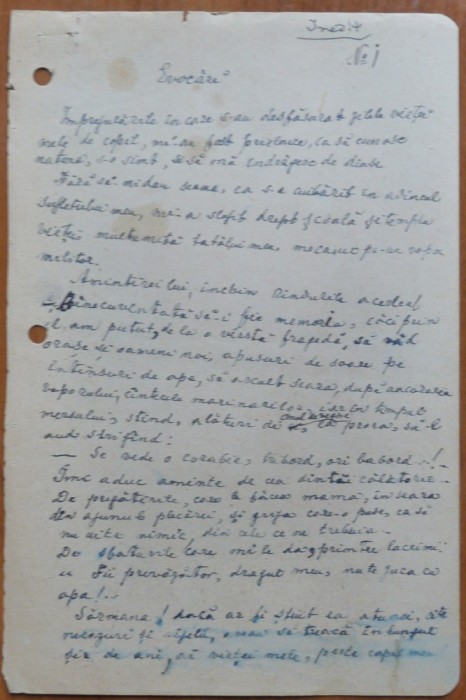 Inedit
No 1
Evocări
Împrejurările în care s-au desfășurat zilele vieței
mele de copil, mi-au fost prielnice, ca să cunosc
natura, s-o simt, să mă îndrăgesc de dînsa
Fără să-mi dau seama, ea s-a cuibărit în adîncul
sufletului meu, mi-a slujit drept școală și templu
vieței mulțumită tatălui meu, mecanic pe un vapor
militar.
Amintirei lui, închin rîndurile acelea!
Binecuvîntată să-i fie memoria, căci prin
el am putut, de la o vîrstă fragedă, să văd
orașe și oameni noi, apusuri de soare pe
întinsuri de apă, să ascult seara, după ancorarea
vaporului, cîntecele marinarilor, iar în timpul
mersului, stînd, alături de la prora, să-l
aud strigînd:
— Se vede o corabie, tribord, ori babord...!
Îmi aduc aminte de cea dintîi călătorie.
De pregătirile, care le făcea mama, în seara
din ajunul plecării, și grija care-o purta, ca să
nu uite nimic, din cele ce ne trebuia.
De sfaturile care mi le da printre lacrimi.
Fii prevăzător, dragul meu, nu te juca cu
apa!..
Sărmana! dacă ar fi știut ea atunci, cîte
necazuri și să treacă în lungul
de ani, ai vieței mele, peste capul meu